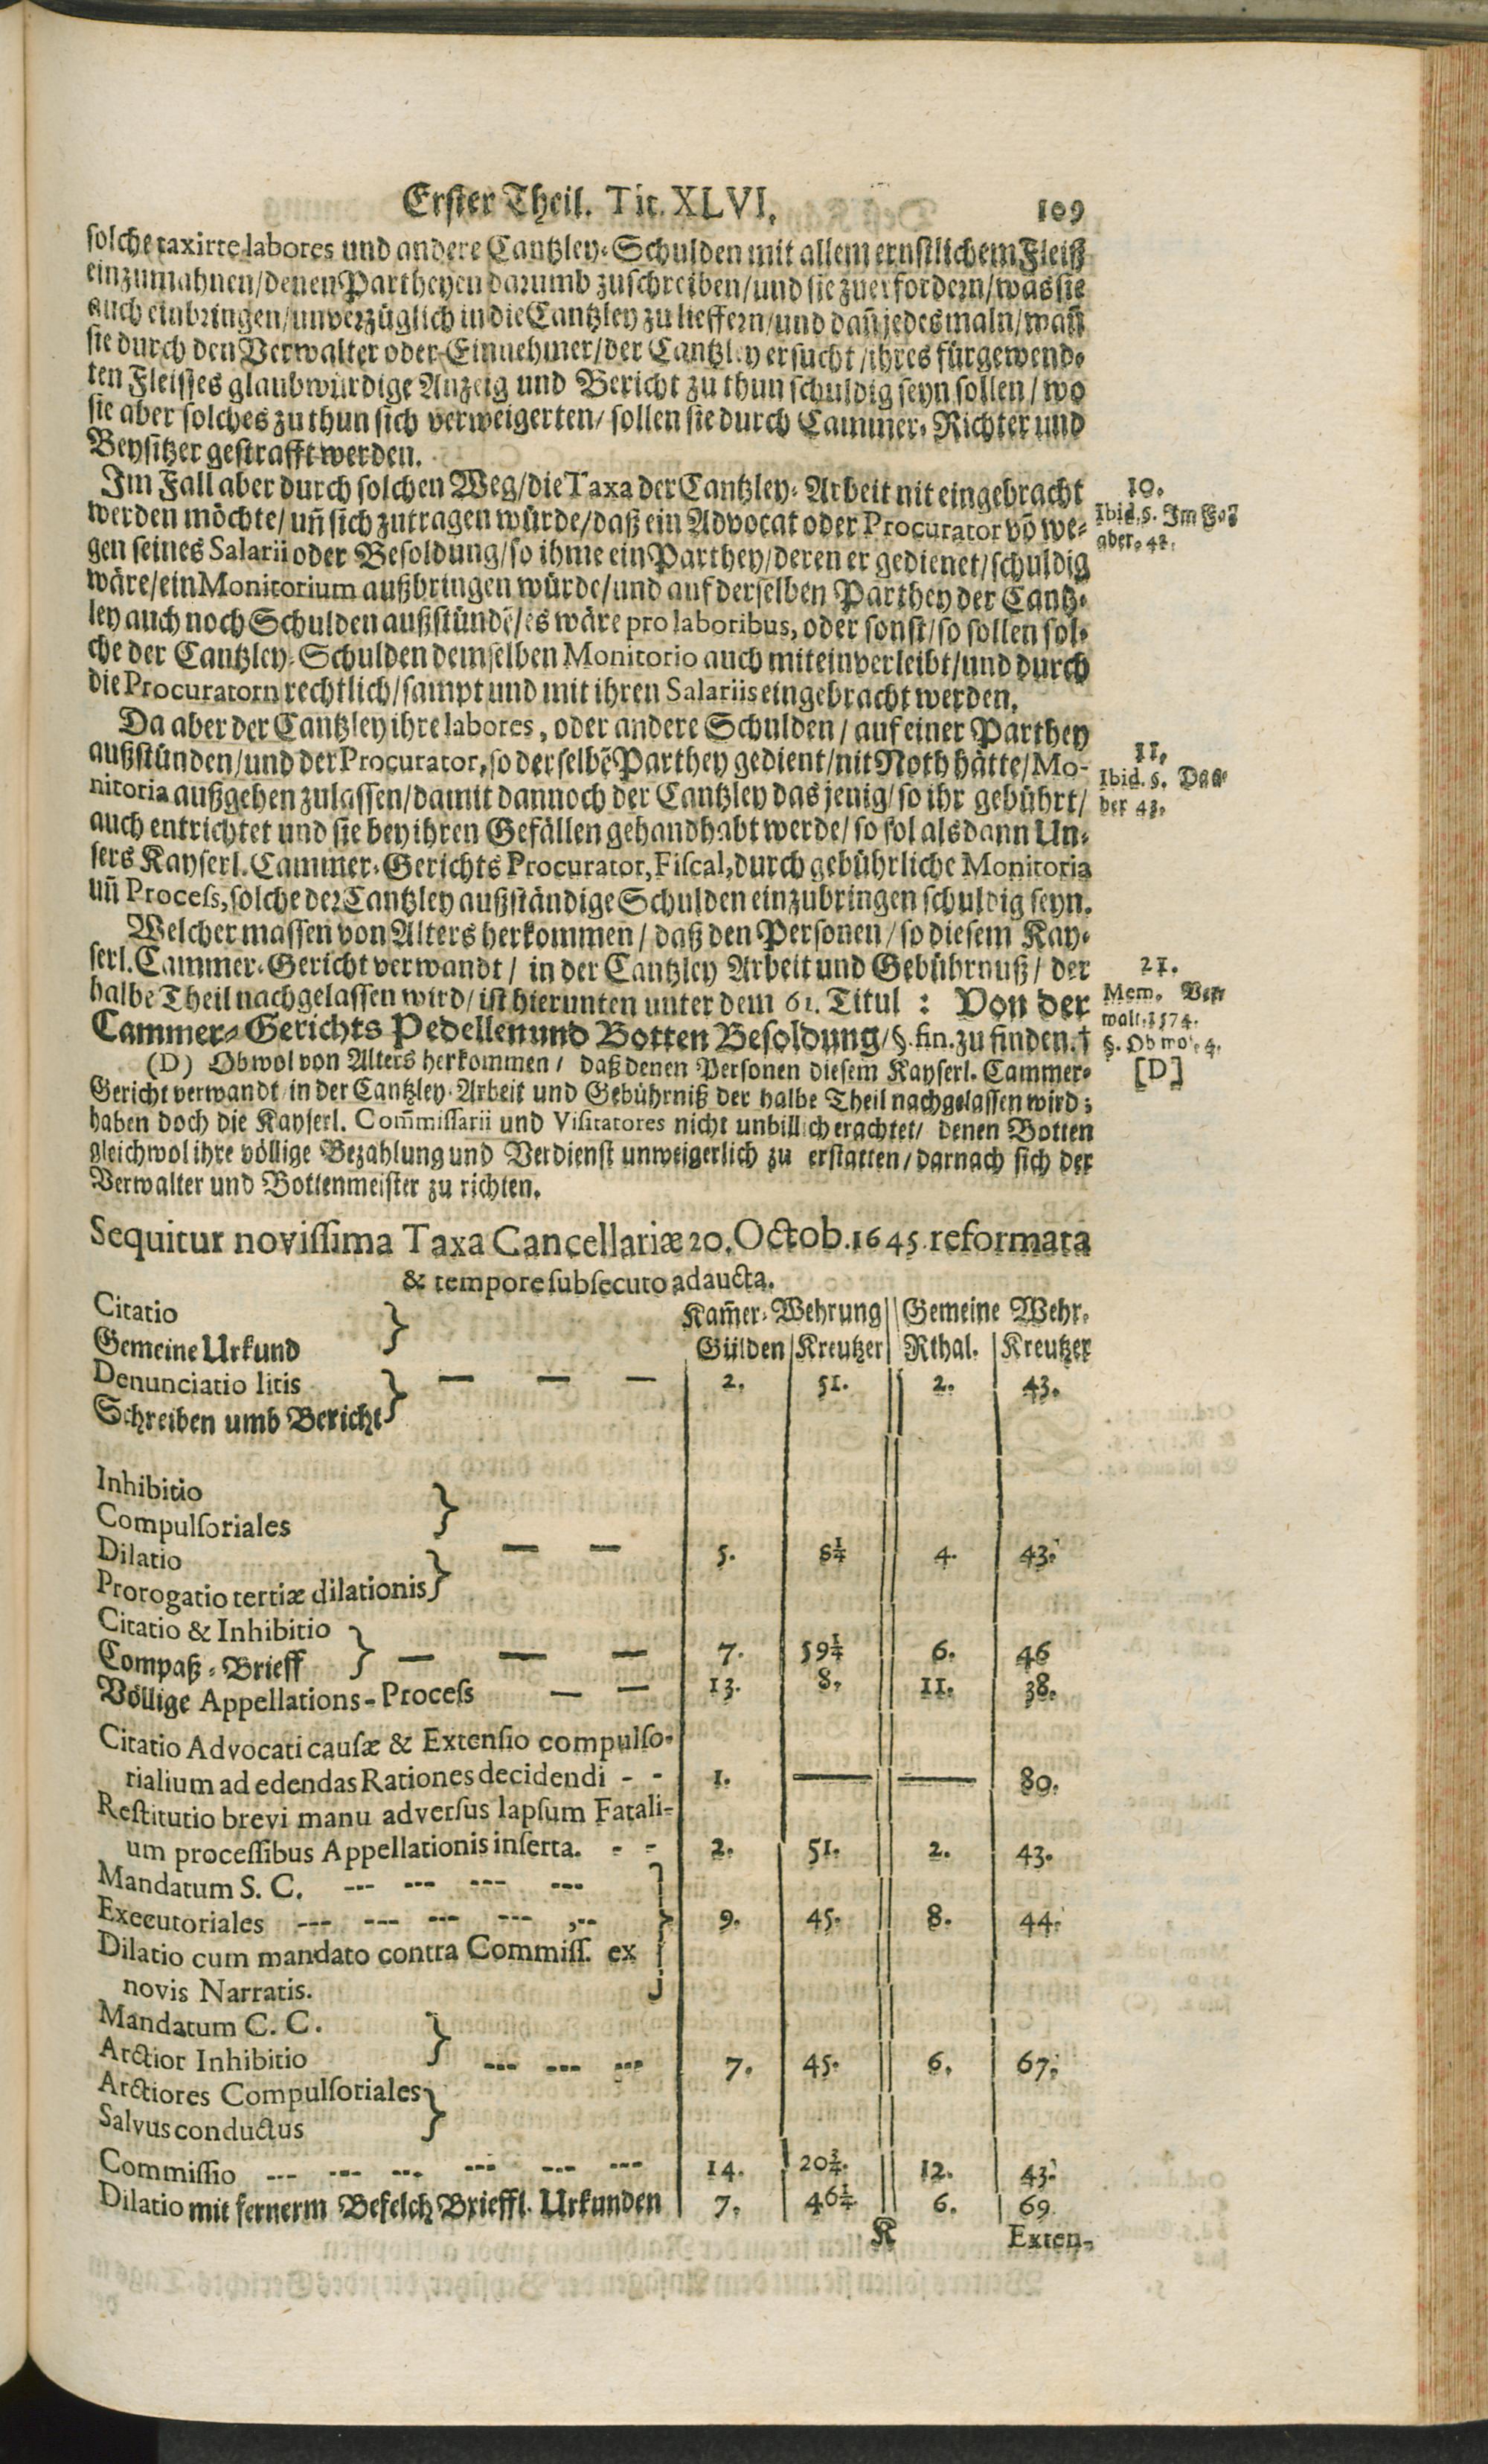 Erster Theil. Tit. XLVI. 109
solche taxirte labores und andere Cantzley-Schulden mit allem ernstlichem Fleiß
einzumahnen/denen Partheyen darumb zuschreiben/und sie zuerfordern/was sie
auch einbringen/unverzüglich in die Cantzley zu lieffern/und dañ jedesmaln/wañ
sie durch den Verwalter oder Einnehmer/der Cantzley ersucht/ihres fürgewend-
ten Fleisses glaubwürdige Anzeig und Bericht zu thun schuldig seyn sollen/wo
sie aber solches zu thun sich verweigerten/sollen sie durch Cammer-Richter und
Beysitzer gestrafft werden.
Im Fall aber durch solchen Weg/die Taxa der Cantzley-Arbeit nit eingebracht
werden möchte/uñ sich zutragen würde/daß ein Advocat oder Procurator võ we-
gen seines Salarii oder Besoldung/so ihme ein Parthey/deren er gedienet/schuldig
wäre/ein Monitorium außbringen würde/und auf derselben Parthey der Cantz-
ley auch noch Schulden außstündẽ/es wäre pro laboribus, oder sonst/so sollen sol-
che der Cantzley-Schulden demselben Monitorio auch mit einverleibt/und durch
die Procuratorn rechtlich/sampt und mit ihren Salariis eingebracht werden.
10.
Ibid. §. Im Fall
aber. 42.
Da aber der Cantzley ihre labores, oder andere Schulden/auf einer Parthey
außstünden/und der Procurator, so derselbẽ Parthey gedient/nit Noth hätte/Mo-
nitoria außgehen zulassen/damit dannoch der Cantzley das jenig/so ihr gebührt/
auch entrichtet und sie bey ihren Gefällen gehandhabt werde/so sol alsdann Un-
sers Kayserl. Cammer-Gerichts Procurator, Fiscal, durch gebührliche Monitoria
uñ Process, solche der Cantzley außständige Schulden einzubringen schuldig seyn.
11.
Ibid. §. Da a-
ber 43.
Welcher massen von Alters herkommen/daß den Personen/so diesem Kay-
serl. Cammer-Gericht verwandt/in der Cantzley Arbeit und Gebührnuß/der
halbe Theil nachgelassen wird/ist hierunten unter dem 61. Titul: Von der
Cammer-Gerichts Pedellen und Botten Besoldung/§. fin. zu finden. †
21.
Mem. Ver
walt. 1574.
§. Obwol. 4.
[D]
(D) Obwol von Alters herkommen/daß denen Personen diesem Kayserl. Cammer-
Gericht verwandt in der Cantzley-Arbeit und Gebührniß der halbe Theil nachgelassen wird;
haben doch die Kayserl. Com̃issarii und Visitatores nicht unbillich erachtet/denen Botten
gleichwol ihre völlige Bezahlung und Verdienst unweigerlich zu erstatten/darnach sich der
Verwalter und Bottenmeister zu richten.
Sequitur novissima Taxa Cancellariæ 20. Octob. 1645. reformata
& tempore subsecuto adaucta.
Kam̃er-Wehrung || Gemeine Wehr.
Gülden | Kreutzer || Rthal. | Kreutzer
Citatio
Gemeine Urkund
Denunciatio litis — — — 2. 51. 2. 43.
Schreiben umb Bericht
Inhibitio
Compulsoriales
— — 5. 8¼ 4. 43.
Dilatio
Prorogatio tertiæ dilationis
Citatio & Inhibitio
Compaß-Brieff — — — 7. 59¼ 6. 46
Völlige Appellations-Process — — 13. 8. 11. 38.
Citatio Advocati causæ & Extensio compulso-
rialium ad edendas Rationes decidendi - - 1. — — 80.
Restitutio brevi manu adversus lapsum Fatali-
um processibus Appellationis inserta. - - 2. 51. 2. 43.
Mandatum S. C. --- --- --- ---
Executoriales --- --- --- --- --- 9. 45. 8. 44.
Dilatio cum mandato contra Commiss. ex
novis Narratis.
Mandatum C. C.
Arctior Inhibitio --- --- --- 7. 45. 6. 67.
Arctiores Compulsoriales
Salvus conductus
Commissio --- --- --- --- --- --- 14. 20¾. 12. 43.
Dilatio mit fernerm Befelch Brieffl. Urkunden 7. 46¼. 6. 69.
K Exten-